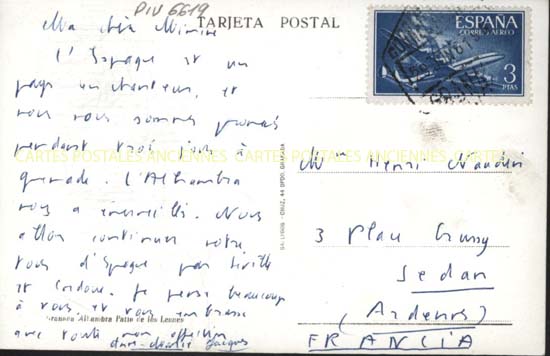 PIV 6619
TARJETA POSTAL
Ma chère Mimine
L'Espagne est un
pays enchanteur, et
nous nous sommes promenés
pendant trois jours à
grenade. L'Alhambra
nous a émerveillés. Nous
allons continuer notre
tour d'Espagne par Séville
et Cordoue. Je pense beaucoup
à vous et vous embrasse
avec toute mon affection
Jacques
Granada Alhambra Patio de los Leones
CARTES POSTALES ANCIENNES CARTES POSTALES ANCIENNES CARTES POSTALES ANCIENNES
ESPAÑA
CORREO AEREO
3
PTAS
Mme Henri
3 Place Crussy
Sedan
(Ardennes)
FRANCIA